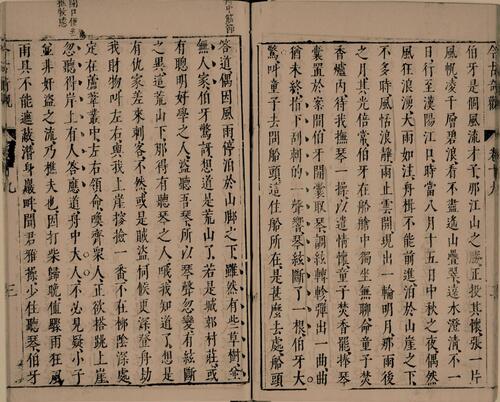 今古奇觀
卷十九
伯牙是個風流才子那江山之勝正投其懷張一片
風帆凌千層碧浪看不盡遙山疊翠遠水澄清不一
日行至漢陽江口時當八月十五日中秋之夜偶然
風狂浪湧大雨如注舟楫不能前進泊於山崖之下
不多時風恬浪靜雨止雲開現出一輪明月那雨後
之月其光倍常伯牙在船艙中獨坐無聊命童子焚
香爐內待我撫琴一操以遣情懷童子焚香罷捧琴
囊置於案間伯牙開囊取琴調絃轉軫彈出一曲曲
猶未終指下刮剌的一聲響琴絃斷了一根伯牙大
驚叫童子去問船頭這住船所在是甚麼去處船頭
答道偶因風雨停泊於山腳之下雖然有些草樹並
無人家伯牙驚訝想道是荒山了若是城郭村莊或
有聰明好學之人盜聽吾琴所以琴聲忽變有絃斷
之異這荒山下那得有聽琴之人哦我知道了想是
有仇家差來刺客不然或是賊盜伺候更深登舟劫
我財物叫左右與我上崖搜檢一番不在柳陰深處
定在蘆葦叢中左右領命喚齊眾人正欲搭跳上崖
忽聽得岸上有人答應道舟中大人不必見疑小子
並非奸盜之流乃樵夫也因打柴歸晚值驟雨狂風
雨具不能遮蔽潛身巖畔聞君雅操少住聽琴伯牙
今古奇觀
九
三